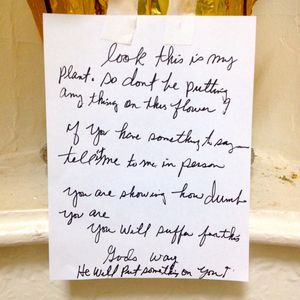 look this is my
plant. so dont be putting
any thing on this flower?
if you have something to say
tell it me to me in person
you are showing how dumb
you are
you will suffer for this
Gods way
He will put something on you!